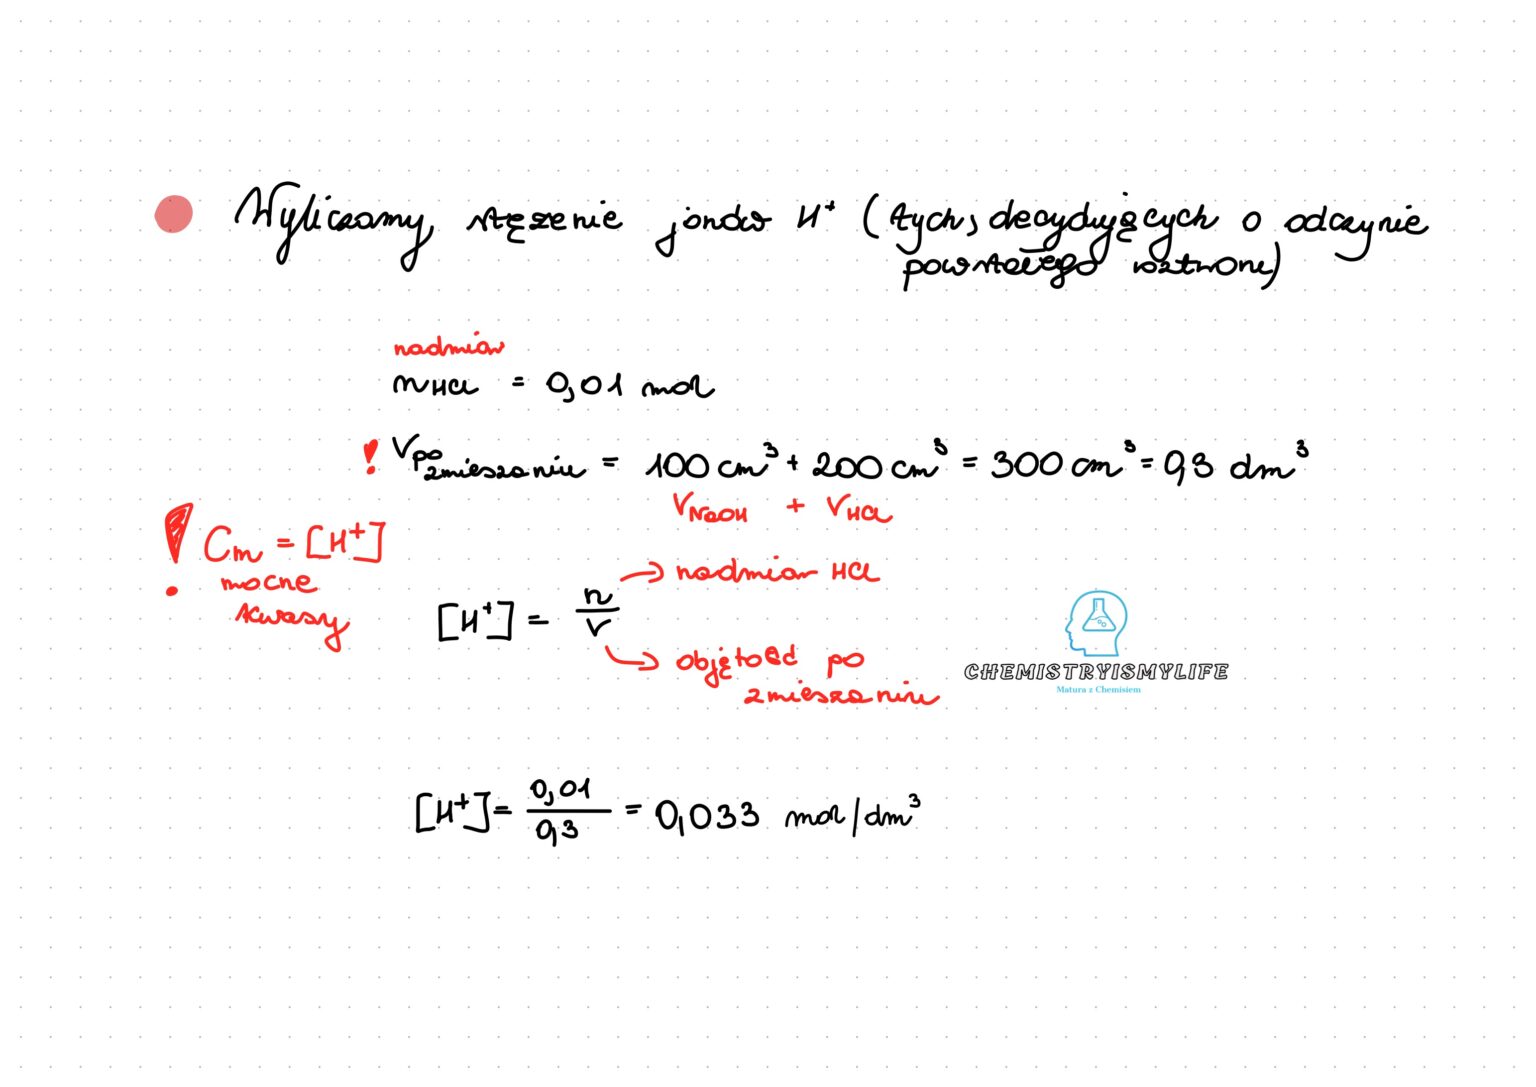 Wyliczamy stężenie jonów H⁺ (tych, decydujących o odczynie
powstałego roztworu)
nadmiar
nHCl = 0,01 mol
! Vpo zmieszaniu = 100 cm³ + 200 cm³ = 300 cm³ = 0,3 dm³
VNaOH + VHCl
! Cm = [H⁺]
mocne
kwasy
[H⁺] = n/V
→ nadmiar HCl
→ objętość po
zmieszaniu
CHEMISTRYISMYLIFE
Matura z Chemisiem
[H⁺] = 0,01/0,3 = 0,033 mol/dm³